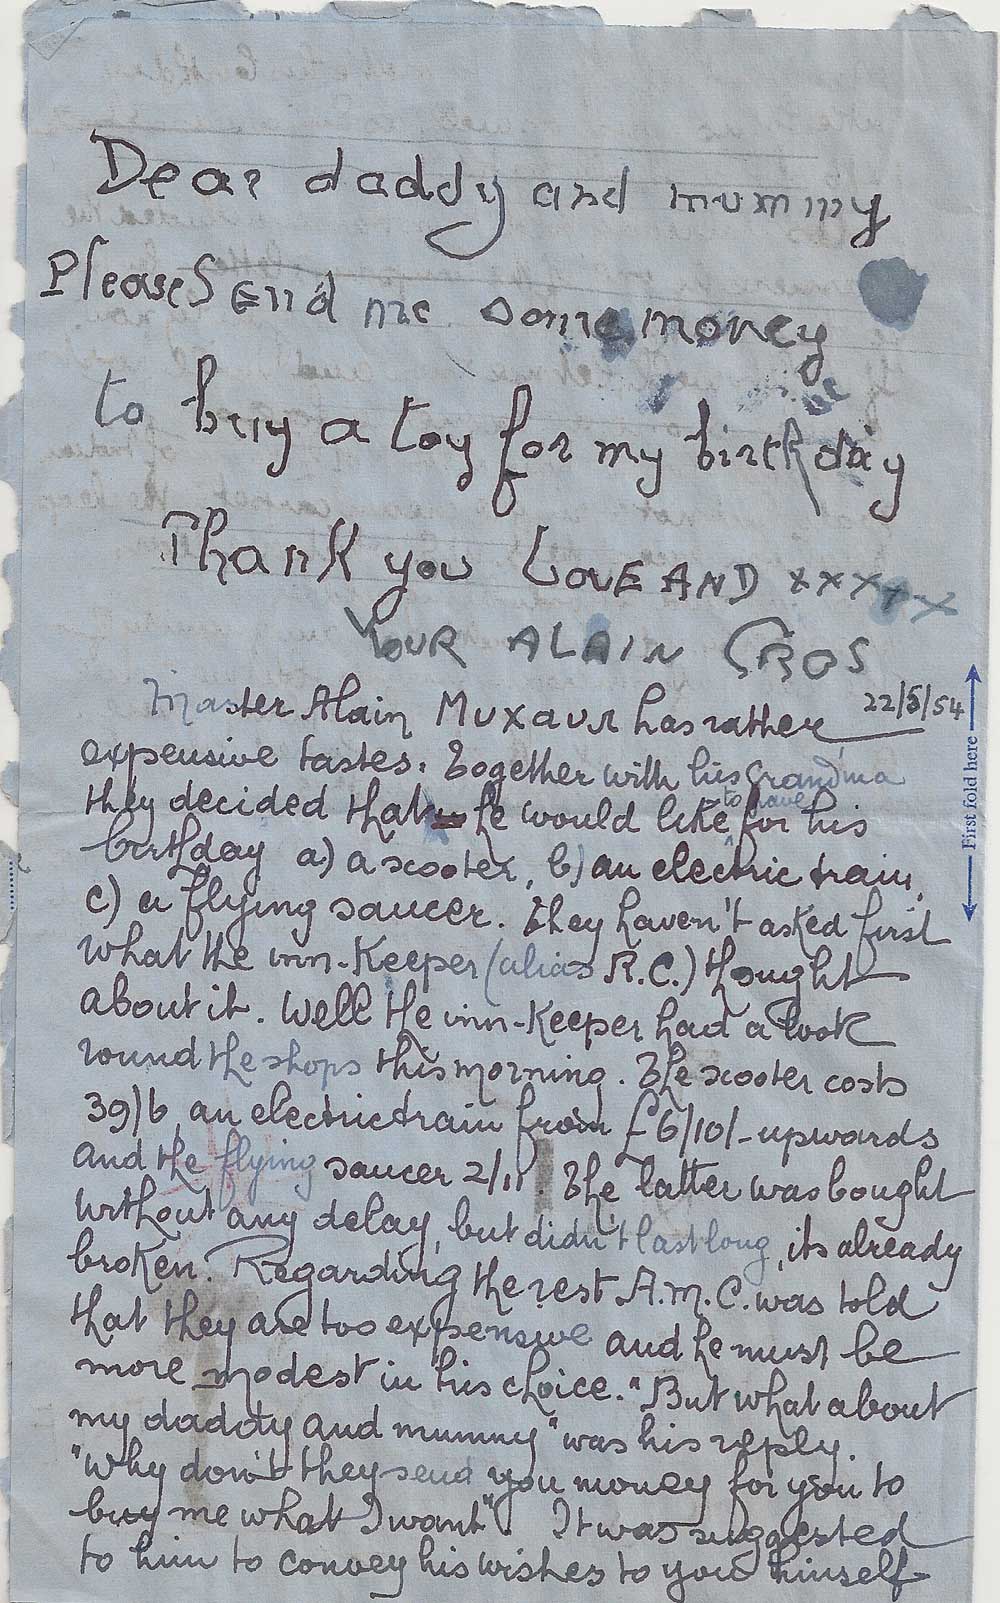 Dear daddy and mummy
Please Send me some money
to buy a toy for my birthday
Thank you LOVE AND xxxxx
YOUR ALAIN CROS
22/5/54
Master Alain Muxaur has rather
expensive tastes. Together with his Grandma
they decided that he would like to have for his
birthday a) a scooter, b) an electric train,
c) a flying saucer. They haven't asked first
what the inn-Keeper (alias R.C.) thought
about it. Well the inn-Keeper had a look
round the shops this morning. The scooter costs
39/6, an electric train from £6/10/- upwards
and the flying saucer 2/11. The latter was bought
without any delay, but didn't last long, its already
broken. Regarding the rest A.M.C. was told
that they are too expensive and he must be
more modest in his choice. "But what about
my daddy and mummy" was his reply.
"Why don't they send you money for you to
buy me what I want". It was suggested
to him to convey his wishes to you himself
First fold here